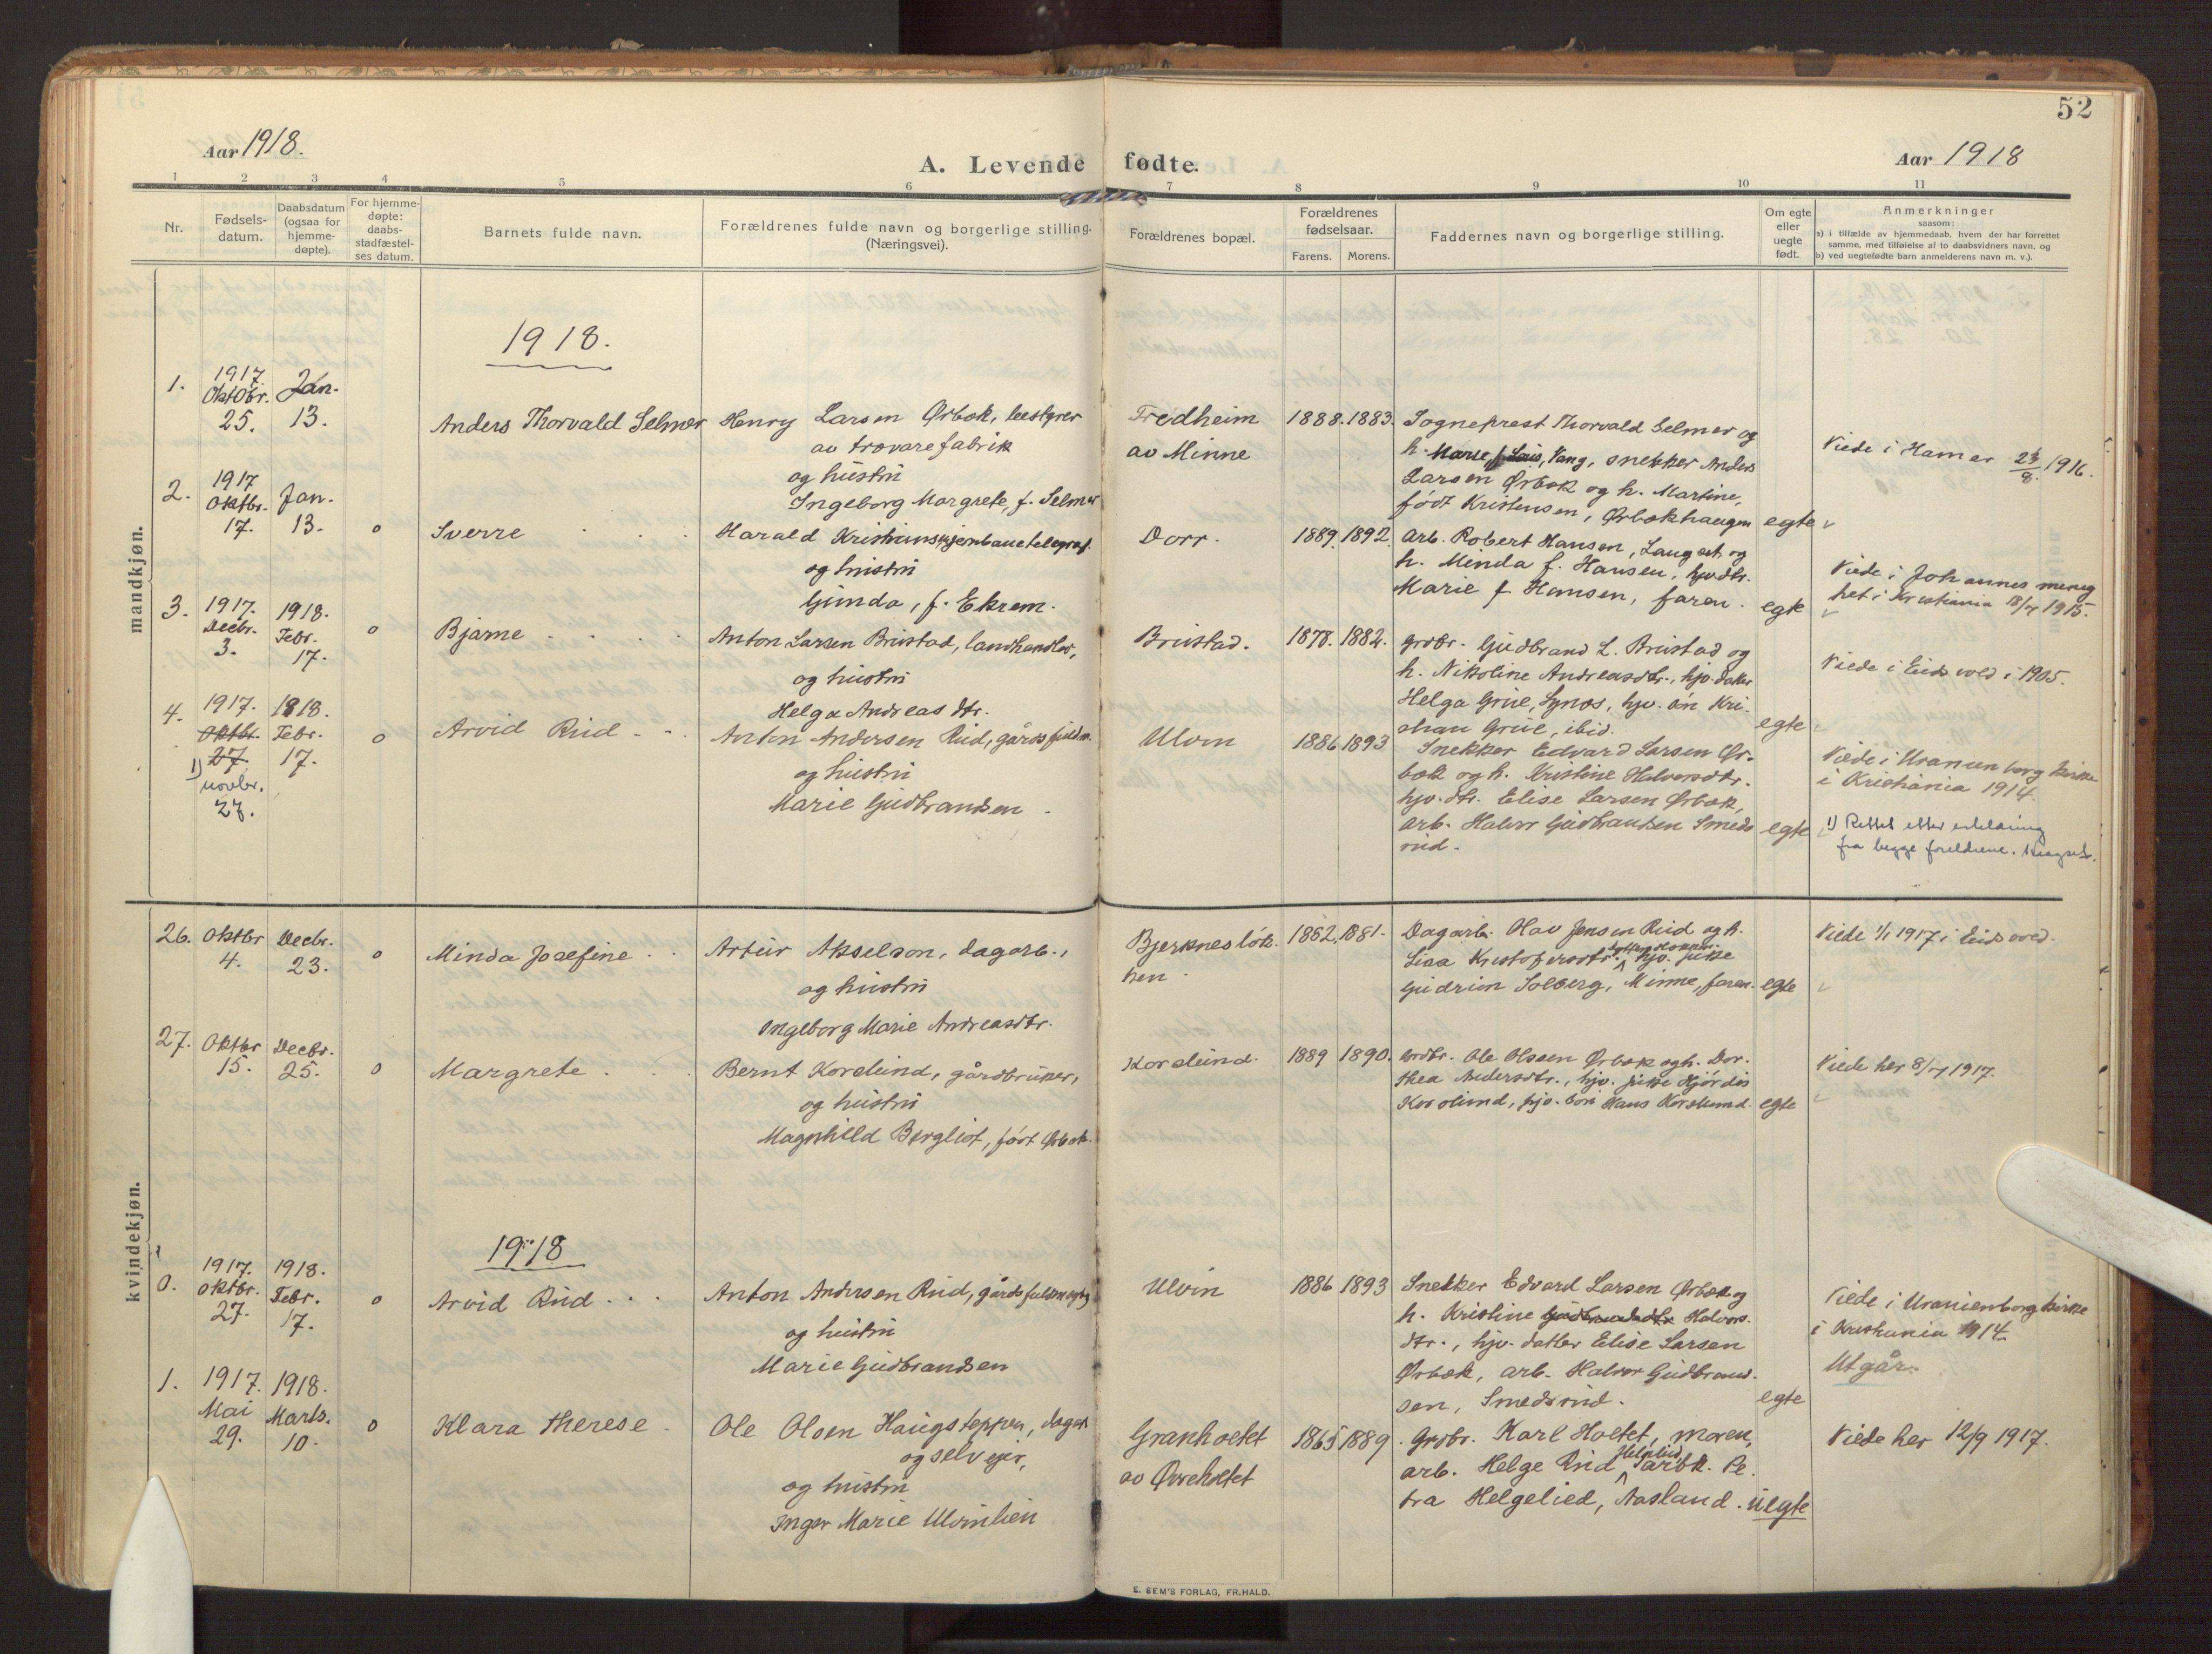 52
Aar 1918.
A. Levende fødte.
Aar 1918
1 2 3 4 5 6 7 8 9 10 11
Nr.
Fødsels-
datum.
Daabsdatum
(ogsaa for
hjemme-
døpte).
For hjemme-
døpte:
daabs-
stadfæstel-
ses datum.
Barnets fulde navn.
Forældrenes fulde navn og borgerlige stilling.
(Næringsvei).
Forældrenes bopæl.
Forældrenes
fødselsaar.
Farens. Morens.
Faddernes navn og borgerlige stilling.
Om egte
eller
uegte
født.
Anmerkninger
saasom:
a) i tilfælde av hjemmedaab, hvem der har forrettet
samme, med tilføielse af to daabsvidners navn, og
b) ved uegtefødte barn anmelderens navn m. v.).
mandkjøn.
1918.
1.
1917.
Oktobr.
25.
Jan.
13.
Anders Thorvald Selmer
Henry Larsen Ørbæk, bestyrer
av trævarefabrik
og hustru
Ingeborg Margrete, f. Selmer
Fredheim
av Minne
1888. 1883.
Sogneprest Thorvald Selmer og
h. Marie, Vang, snekker Anders
Larsen Ørbæk og h. Martine,
født Kristensen, Ørbækhaugen
egte
Viede i Hamar 23/8 1916.
2.
1917
Oktbr.
17.
Jan.
13.
0
Sverre
Harald Kristians, jernbanetelegraf.
og hustru
Gunda, f. Ekrem.
Dorr.
1889. 1892.
Arb. Robert Hansen, Langset og
h. Minda f. Hansen, hjv. dtr.
Marie f. Hansen, faren.
egte
Viede i Johannes menig
het i Kristiania 18/7 1915.
3.
1917.
Decbr.
3.
1918.
Febr.
17.
0
Bjarne
Anton Larsen Brustad, landhandler,
og hustru
Helga Andreasdtr.
Brustad.
1878. 1882.
Grdbr. Gudbrand L. Brustad og
h. Nikoline Andreasdtr., hjv. datter
Helga Grue, Synøs, hjv. søn Kri-
stian Grue, ibid.
egte
Viede i Eidsvold i 1905.
4.
1917.
Oktbr.
27.
1)
novbr.
27.
1918.
Febr.
17.
0
Arvid Rud
Anton Andersen Rud, gårdsfuldm.
og hustru
Marie Gudbrandsen.
Ulvin
1886 1893
Snekker Edvard Larsen Ør-
bæk og h. Kristine Halvorsdtr.
hjv. dtr. Elise Larsen Ørbæk,
arb. Halvor Gudbrandsen Smeds
rud.
egte
Viede i Uranienborg kirke
i Kristiania 1914.
1) Rettet etter erklæring
fra begge foreldrene.
kvindekjøn.
26.
Oktbr
4.
Decbr.
23.
0
Minda Josefine
Artur Akselson, dagarb.,
og hustru
Ingeborg Marie Andreasdtr.
Bjerknesløk-
ken.
1862. 1881.
Dagarb. Hav Jensen Rud og h.
Lisa Kristofersdtr. hjv. pike
Gudrun Solberg, Minne, faren.
egte
Viede 1/1 1917 i Eidsvold.
27.
Oktbr
15.
Decbr.
25.
0
Margrete
Bernt Korslund, gårdbruker,
og hustru
Magnhild Bergliot, født Ørbæk.
Korslund.
1889 1890.
Grdbr. Ole Olsen Ørbæk og h. Dor-
thea Andersdtr., hjv. pike Hjørdis
Korslund, hjv. søn Hans Korslund.
egte
Viede her 8/7 1917.
1918
0.
1917.
Oktbr.
27.
1918.
Febr.
17.
0
Arvid Rud
Anton Andersen Rud, gårdsfuldmegtig
og hustru
Marie Gudbrandsen
Ulvin
1886 1893
Snekker Edvard Larsen Ørbæk og
h. Kristine Gudbrandsdtr Halvors-
dtr., hjv. datter Elise Larsen
Ørbæk, arb. Halvor Gudbrand-
sen, Smedsrud.
egte
Viede i Uranienborg kirke
i Kristiania 1914.
Utgår.
1.
1917.
Mai
29.
1918.
Marts.
10.
0
Klara Therese
Ole Olsen Haugsteppen, dagarb
og selveier,
og hustru
Inger Marie Ulvinlien
Granholtet
av Øvreholtet
1865 1889
Grdbr. Karl Holtet, moren,
arb. Helge Rud Helgelied arbk. Pe-
tra Helgelied, Aasland.
uegte
Viede her 12/9 1917.
E. SEM'S FORLAG, FR.HALD.